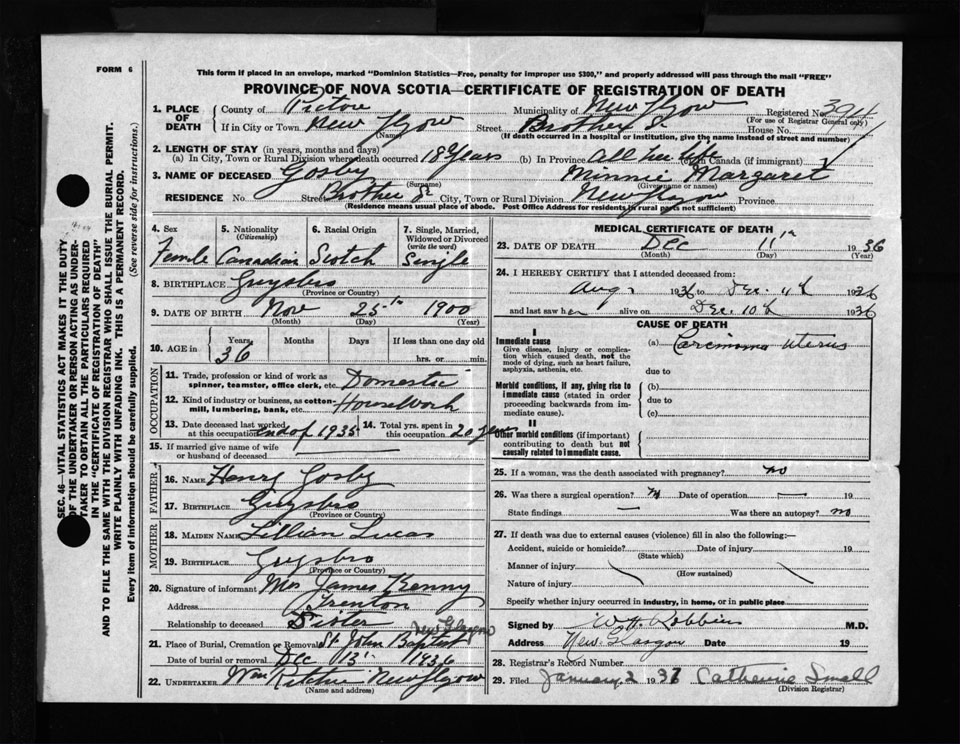 FORM 6
This form if placed in an envelope, marked "Dominion Statistics—Free, penalty for improper use $300," and properly addressed will pass through the mail "FREE"
PROVINCE OF NOVA SCOTIA—CERTIFICATE OF REGISTRATION OF DEATH
1. PLACE OF DEATH County of Pictou Municipality of New Glgow Registered No. (For use of Registrar General only)
If in City or Town New Glgow (Name) Street Brother St House No.
(If death occurred in a hospital or institution, give the name instead of street and number)
2. LENGTH OF STAY (in years, months and days)
(a) In City, Town or Rural Division where death occurred 18 years (b) In Province All her life (c) In Canada (if immigrant)
3. NAME OF DECEASED Gosby (Surname) Minnie Margaret (Given name or names)
RESIDENCE No. Street Brother St City, Town or Rural Division New Glgow Province
(Residence means usual place of abode. Post Office Address for residents in rural parts not sufficient)
4. Sex 5. Nationality (Citizenship) 6. Racial Origin 7. Single, Married, Widowed or Divorced (write the word)
Female Canadian Scotch Single
8. BIRTHPLACE Guysbro (Province or Country)
9. DATE OF BIRTH Nov 25th 1900
(Month) (Day) (Year)
10. AGE in Years Months Days If less than one day old
36 hrs. or min.
OCCUPATION
11. Trade, profession or kind of work as spinner, teamster, office clerk, etc. Domestic
12. Kind of industry or business, as cotton-mill, lumbering, bank, etc. Housework
13. Date deceased last worked at this occupation end of 1935 14. Total yrs. spent in this occupation 20 years
15. If married give name of wife or husband of deceased
FATHER
16. NAME Henry Gosby
17. BIRTHPLACE Guysbro
(Province or Country)
MOTHER
18. MAIDEN NAME Lillian Lucas
19. BIRTHPLACE Guysbro
(Province or Country)
20. Signature of informant Mrs James Kenny
Address Trenton
Relationship to deceased Sister
New Glasgow
21. Place of Burial, Cremation or Removal St John Baptist
Date of burial or removal Dec 13 1936
22. UNDERTAKER Wm Ritchie New Glgow
(Name and address)
MEDICAL CERTIFICATE OF DEATH
23. DATE OF DEATH Dec 11th 1936
(Month) (Day) (Year)
24. I HEREBY CERTIFY that I attended deceased from:
Aug 1936 to Dec. 1936
and last saw her alive on Dec. 10th 1936
CAUSE OF DEATH
I
Immediate cause
Give disease, injury or complication which caused death, not the mode of dying, such as heart failure, asphyxia, asthenia, etc.
(a) Carcinoma Uterus
due to
Morbid conditions, if any, giving rise to immediate cause (stated in order proceeding backwards from immediate cause).
(b)
due to
(c)
II
Other morbid conditions (if important) contributing to death but not causally related to immediate cause.
25. If a woman, was the death associated with pregnancy? no
26. Was there a surgical operation? Date of operation — 19
State findings — Was there an autopsy? no
27. If death was due to external causes (violence) fill in also the following:—
Accident, suicide or homicide? Date of injury 19
(State which)
Manner of injury
(How sustained)
Nature of injury
Specify whether injury occurred in industry, in home, or in public place
Signed by Robbins M.D.
Address New Glasgow Date 19
28. Registrar's Record Number
29. Filed January 2 1937 Catherine Small
(Division Registrar)
SEC. 46—VITAL STATISTICS ACT MAKES IT THE DUTY
OF THE UNDERTAKER OR PERSON ACTING AS UNDERTAKER TO OBTAIN ALL THE PARTICULARS REQUIRED
IN THE "CERTIFICATE OF REGISTRATION OF DEATH"
AND TO FILE THE SAME WITH THE DIVISION REGISTRAR WHO SHALL ISSUE THE BURIAL PERMIT.
WRITE PLAINLY WITH UNFADING INK. THIS IS A PERMANENT RECORD.
Every item of information should be carefully supplied. (See reverse side for instructions.)